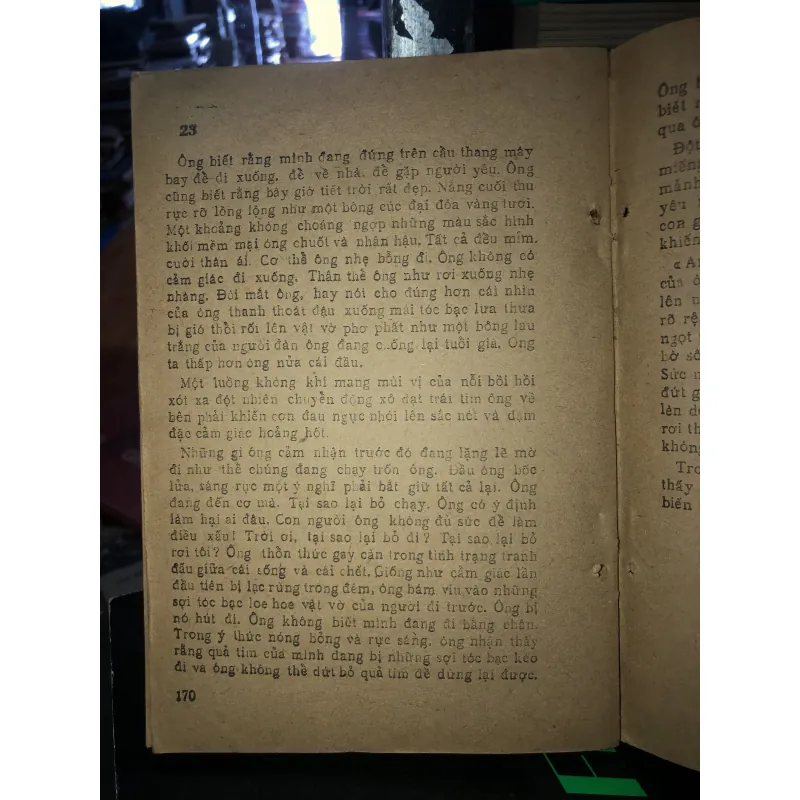 23
Ông biết rằng mình đang đứng trên cầu thang máy
bay để đi xuống, để về nhà, để gặp người yêu. Ông
cũng biết rằng bây giờ tiết trời rất đẹp. Nắng cuối thu
rực rỡ lồng lộng như một bông cúc đại đóa vàng tươi.
Một khoảng không choáng ngợp những màu sắc hình
khối mềm mại óng chuốt và nhân hậu. Tất cả đều mỉm
cười thân ái. Cơ thể ông nhẹ bỗng đi. Ông không có
cảm giác đi xuống. Thân thể ông như rơi xuống nhẹ
nhàng. Đôi mắt ông, hay nói cho đúng hơn cái nhìn
của ông thanh thoát đậu xuống mái tóc bạc lưa thưa
bị gió thổi rối lên vật vờ phơ phất như một bông lau
trắng của người đàn ông đang chống lại tuổi già. Ông
ta thấp hơn ông nửa cái đầu.
Một luồng không khí mang mùi vị của nỗi bồi hồi
xót xa đột nhiên chuyển động xô dạt trái tim ông về
bên phải khiến cơn đau ngực nhói lên sắc nét và đậm
đặc cảm giác hoảng hốt.
Những gì ông cảm nhận trước đó đang lặng lẽ mờ
đi như thể chúng đang chạy trốn ông. Đầu ông bốc
lửa, sáng rực một ý nghĩ phải bắt giữ tất cả lại. Ông
đang đến cơ mà. Tại sao lại bỏ chạy. Ông có ý định
làm hại ai đâu. Con người ông không đủ sức để làm
điều xấu! Trời ơi, tại sao lại bỏ đi? Tại sao lại bỏ
rơi tôi? Ông thổn thức gay cấn trong tình trạng tranh
đấu giữa cái sống và cái chết. Giống như cảm giác lần
đầu tiên bị lạc rừng trong đêm, ông bám víu vào những
sợi tóc bạc loe hoe vật vờ của người đi trước. Ông bị
nó hút đi. Ông không biết mình đang đi bằng chân.
Trong ý thức nóng bỏng và rực sáng, ông nhận thấy
rằng quả tim của mình đang bị những sợi tóc bạc kéo
đi và ông không thể dứt bỏ quả tim để dừng lại được.
170
Ông
biết
qua
Đột
miếng
mảnh
yêu
con
khiến
của
lên
rỡ
ngọt
bờ
Sức
đứt
lên
rơi
không
thấy
biến